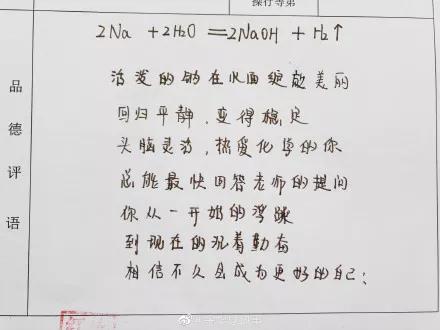 操行等第
2Na + 2H2O ＝ 2NaOH + H2↑
活泼的钠在水面绽放美丽
回归平静，变得稳定
头脑灵活，热爱化学的你
总能最快回答老师的提问
你从一开始的浮躁
到现在的沉着勤奋
相信不久会成为更好的自己；
品德评语